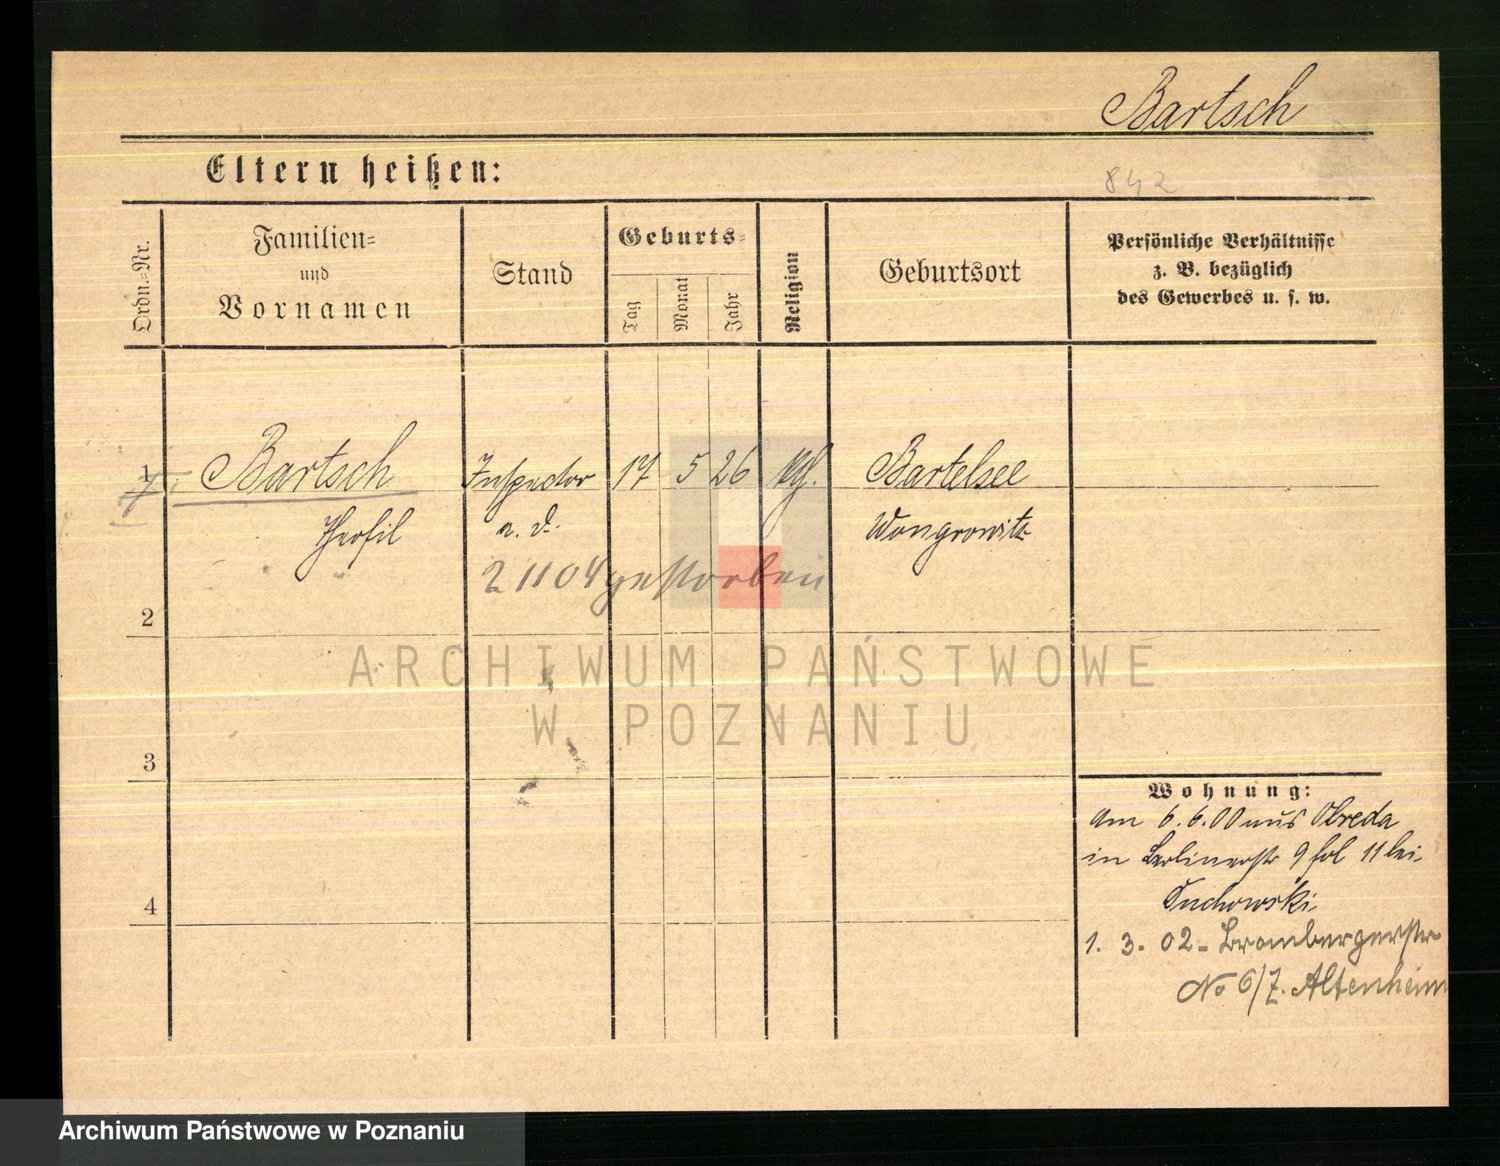 Bartsch
Eltern heißen:
842
Ordn.-Nr.
Familien-
und
Vornamen
Stand
Geburts-
Tag
Monat
Jahr
Religion
Geburtsort
Persönliche Verhältnisse
z. B. bezüglich
des Gewerbes u. s. w.
1
Bartsch
Inspector
17
5
26
Bartelsee
a. D.
Wongrowitz
2 11 04 gestorben
2
ARCHIWUM PAŃSTWOWE
W POZNANIU
3
Wohnung:
Am 6.6.00 aus Obreda
in Berlinerstr 9 fol 11 bei
Suchowski
4
1. 3. 02 - Brombergerstr
No 6/7. Altenheim
Archiwum Państwowe w Poznaniu